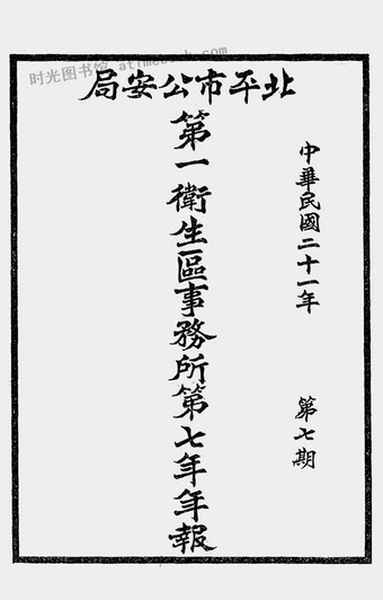 时光图书馆 atimebook.com
北平市公安局
第一衛生區事務所第七年年報
中華民國二十一年
第七期